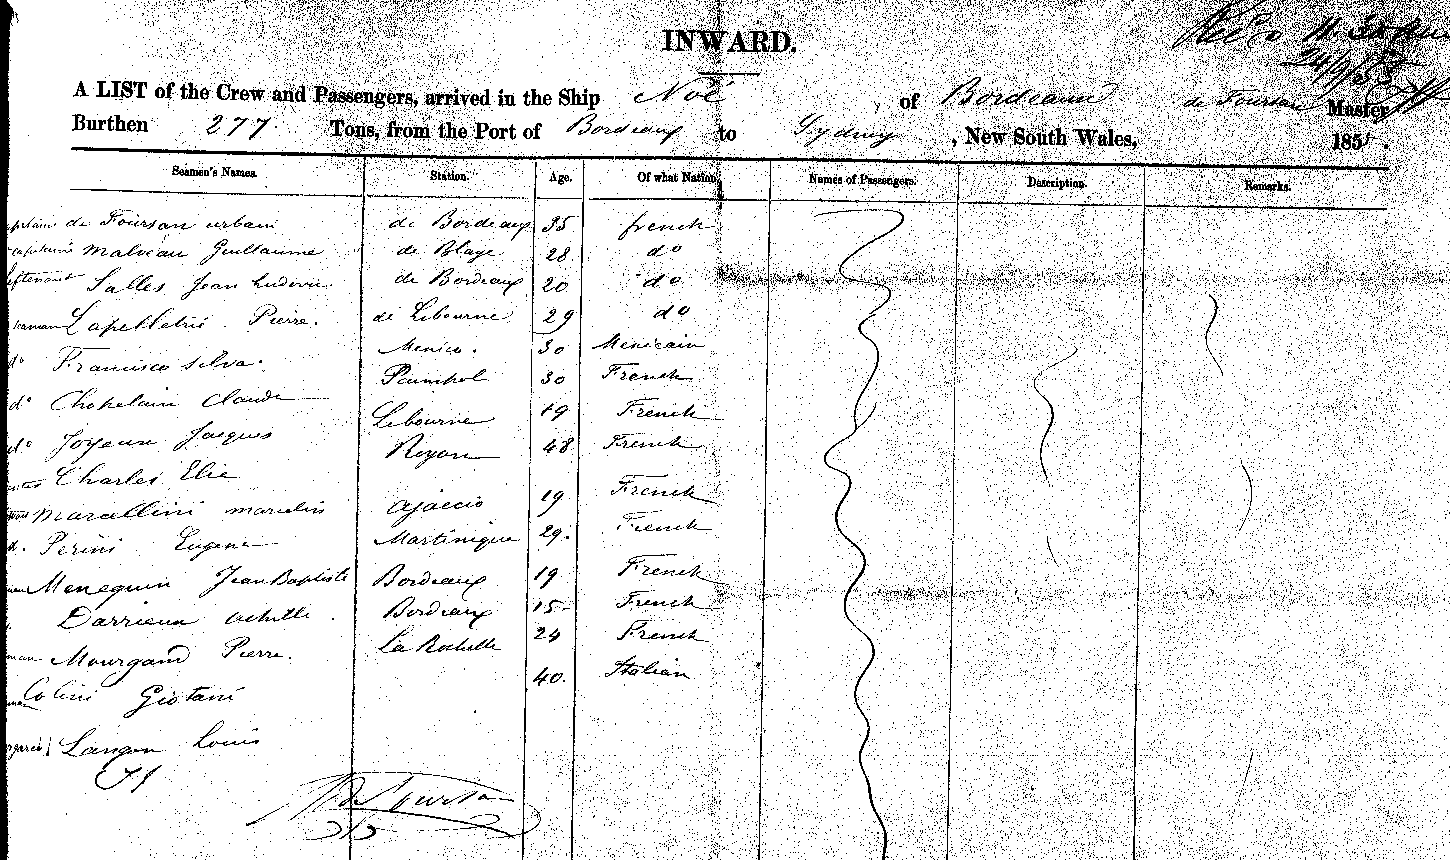 INWARD.
A LIST of the Crew and Passengers, arrived in the Ship Noé, of Bordeaux de Foursan Master
Burthen 277 Tons, from the Port of Bordeaux to Sydney, New South Wales, 185
Seamen's Names. Station. Age. Of what Nation. Names of Passengers. Description. Remarks.
de Foursan urbain de Bordeaux 35 french
Malvéau Guillaume de Blaye 28 do
Salles Jean Ludovic de Bordeaux 20 do
Lapelletrie Pierre. de Libourne 29 do
do Francisco Silva. Mexico. 30 Mexicain
do Chapelain Claude Paimpol 30 French
do Joyeux Jacques Libourne 19 French
Charles Elie Royan 48 French
Marcellini marcelin ajaccio 19 French
Perini Eugene Martinique 29. French
Menequin Jean Baptiste Bordeaux 19 French
Darrieux achille. Bordeaux 15 French
Mourgand Pierre. La Rochelle 24 French
Colini Giotani 40. Italian
Langon Louis